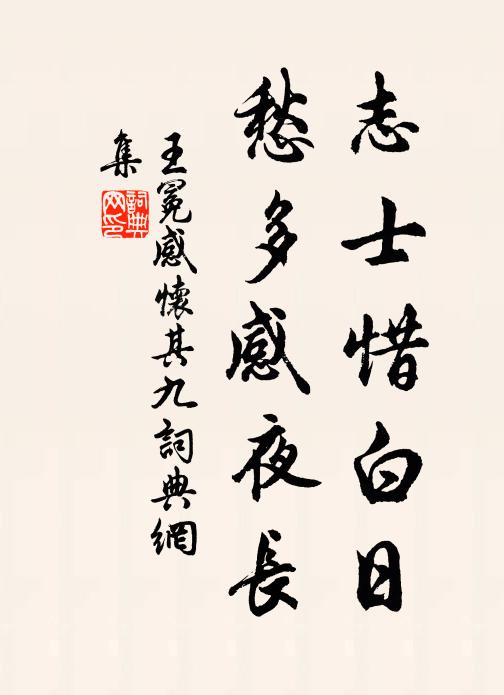 志士惜白日
愁多感夜長
王冕感懷其九詞典網
集
詞典
网印